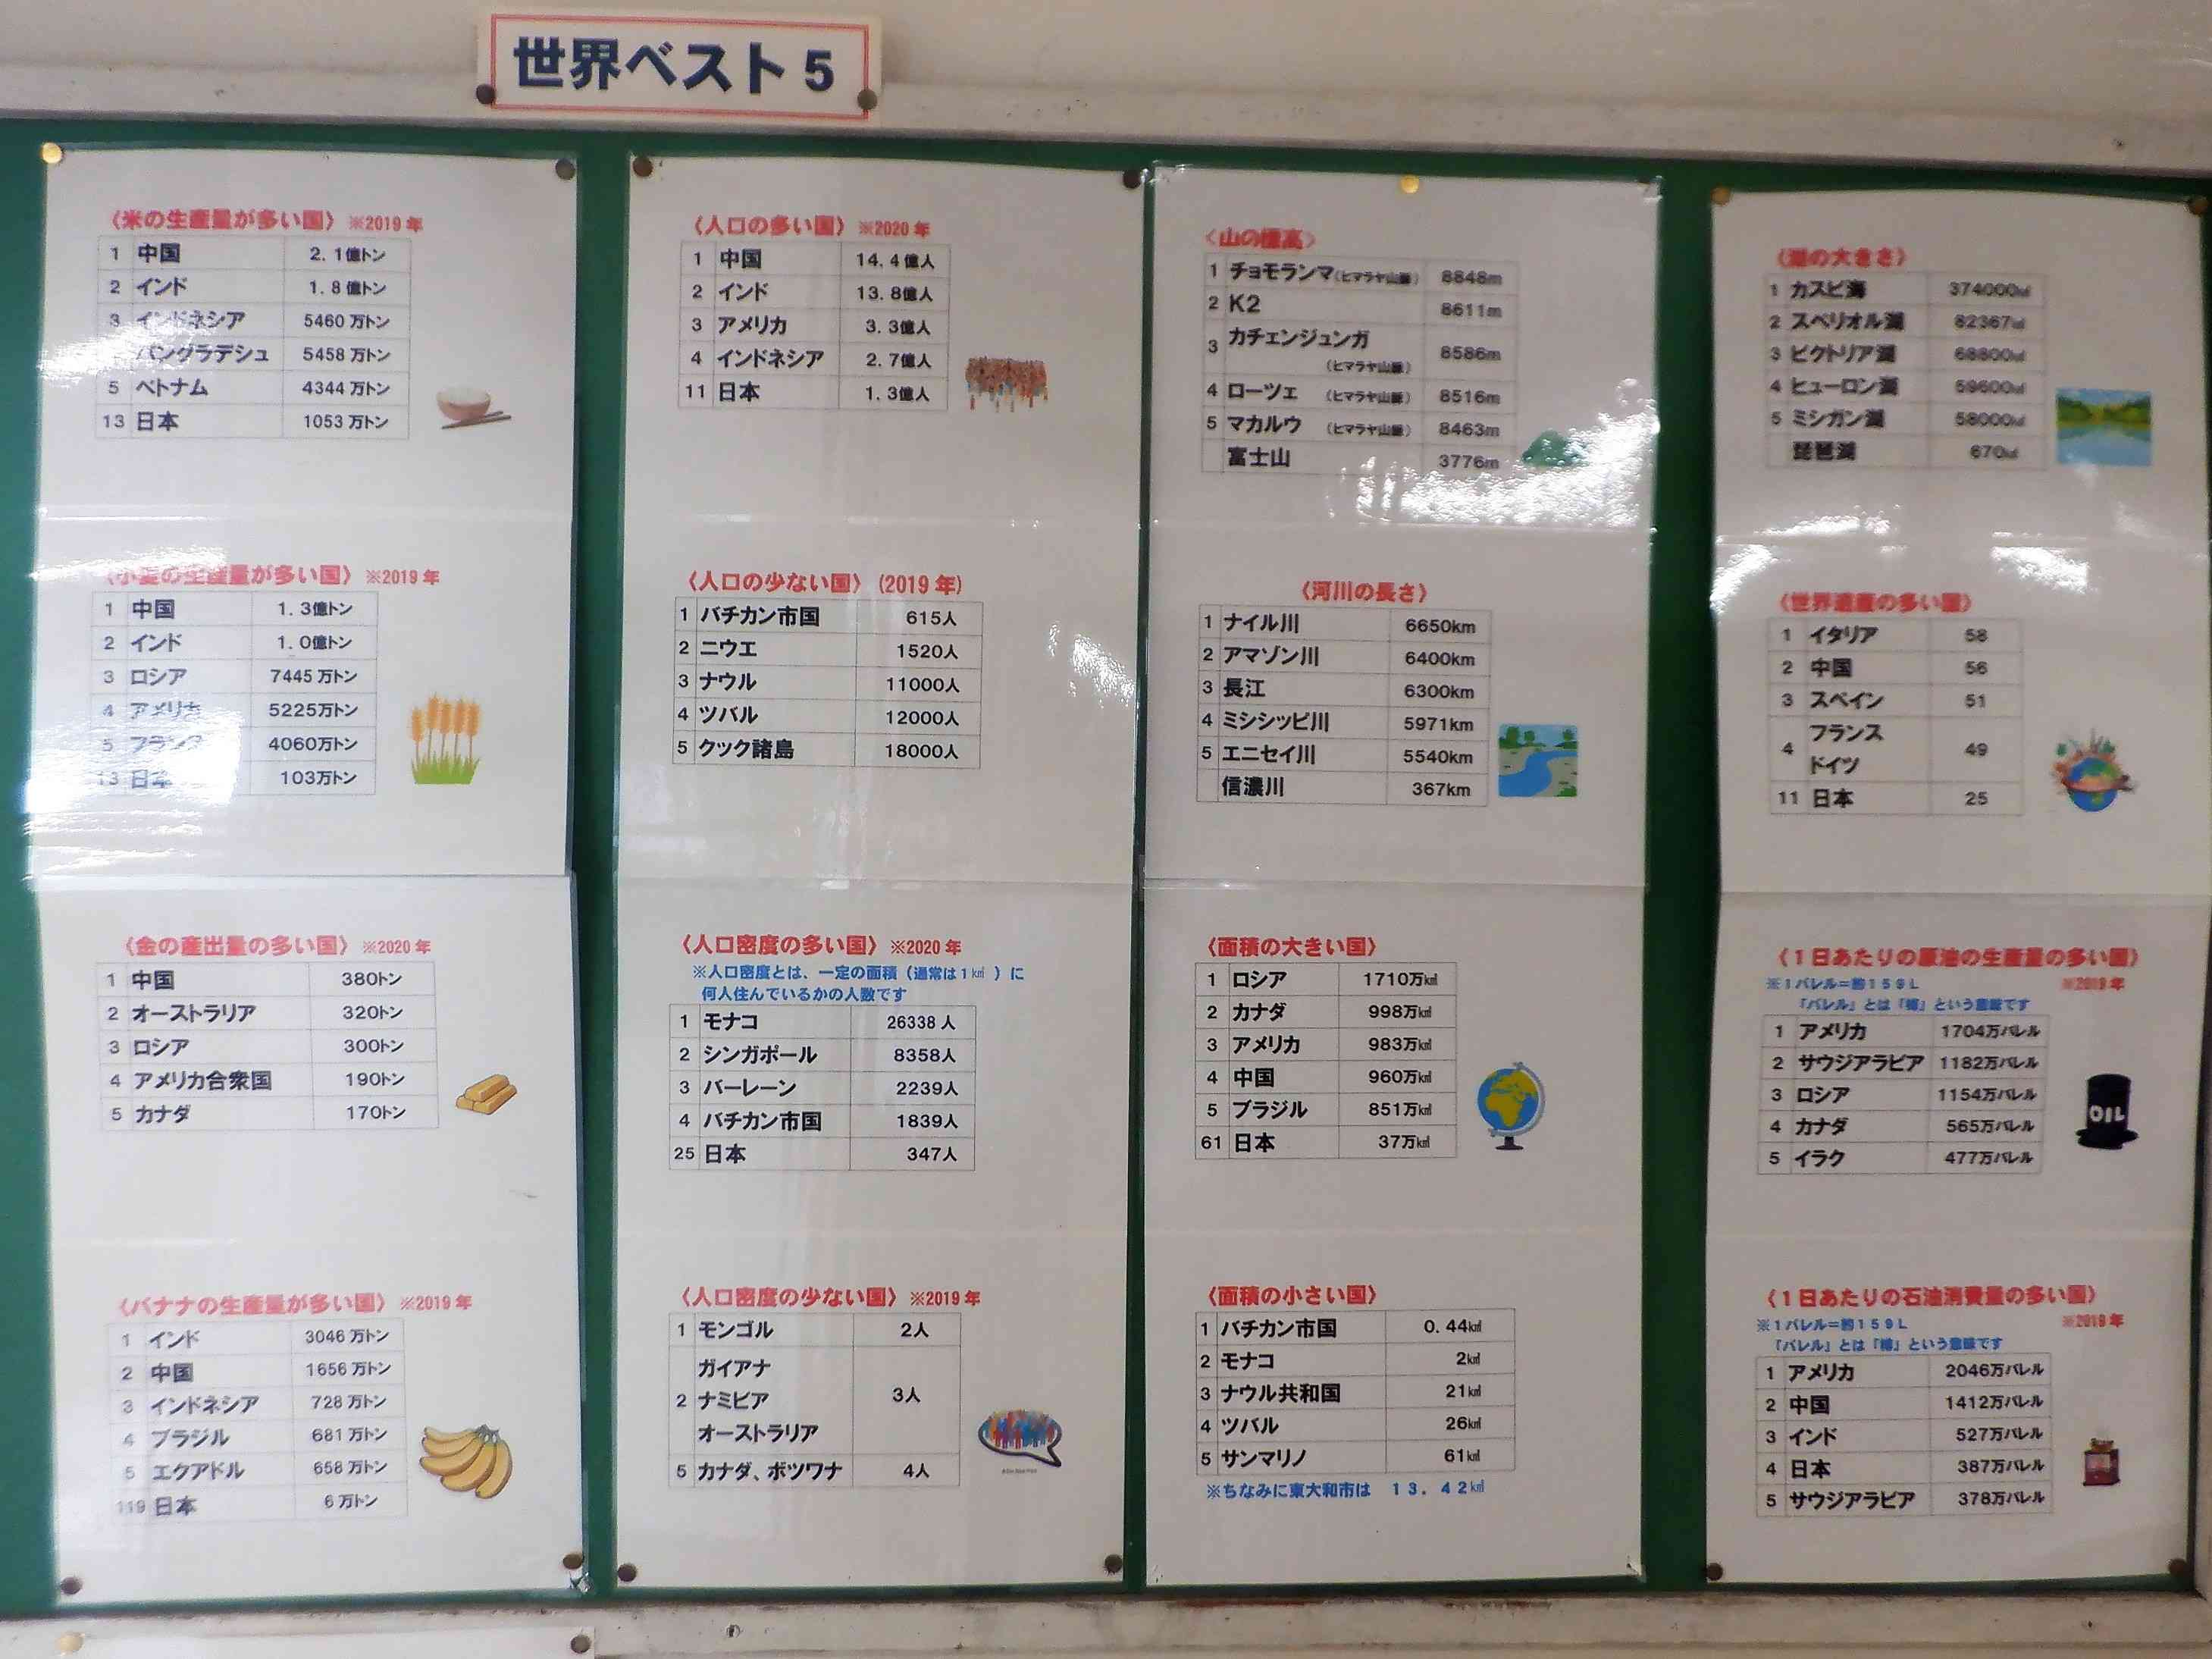 世界ベスト5
〈米の生産量が多い国〉 ※2019年
1 中国 2.1億トン
2 インド 1.8億トン
3 インドネシア 5460万トン
バングラデシュ 5458万トン
5 ベトナム 4344万トン
13 日本 1053万トン
〈小麦の生産量が多い国〉 ※2019年
1 中国 1.3億トン
2 インド 1.0億トン
3 ロシア 7445万トン
4 アメリカ 5225万トン
5 フランス 4060万トン
13 日本 103万トン
〈金の産出量の多い国〉 ※2020年
1 中国 380トン
2 オーストラリア 320トン
3 ロシア 300トン
4 アメリカ合衆国 190トン
5 カナダ 170トン
〈バナナの生産量が多い国〉 ※2019年
1 インド 3046万トン
2 中国 1656万トン
3 インドネシア 728万トン
4 ブラジル 681万トン
5 エクアドル 658万トン
119 日本 6万トン
〈人口の多い国〉 ※2020年
1 中国 14.4億人
2 インド 13.8億人
3 アメリカ 3.3億人
4 インドネシア 2.7億人
11 日本 1.3億人
〈人口の少ない国〉 (2019年)
1 バチカン市国 615人
2 ニウエ 1520人
3 ナウル 11000人
4 ツバル 12000人
5 クック諸島 18000人
〈人口密度の多い国〉 ※2020年
※人口密度とは、一定の面積（通常は1㎢）に
何人住んでいるかの人数です
1 モナコ 26338人
2 シンガポール 8358人
3 バーレーン 2239人
4 バチカン市国 1839人
25 日本 347人
〈人口密度の少ない国〉 ※2019年
1 モンゴル 2人
ガイアナ
2 ナミビア 3人
オーストラリア
5 カナダ、ボツワナ 4人
〈山の標高〉
1 チョモランマ(ヒマラヤ山脈) 8848m
2 K2 8611m
3 カチェンジュンガ 8586m
（ヒマラヤ山脈）
4 ローツェ （ヒマラヤ山脈） 8516m
5 マカルウ （ヒマラヤ山脈） 8463m
富士山 3776m
〈河川の長さ〉
1 ナイル川 6650km
2 アマゾン川 6400km
3 長江 6300km
4 ミシシッピ川 5971km
5 エニセイ川 5540km
信濃川 367km
〈面積の大きい国〉
1 ロシア 1710万㎢
2 カナダ 998万㎢
3 アメリカ 983万㎢
4 中国 960万㎢
5 ブラジル 851万㎢
61 日本 37万㎢
〈面積の小さい国〉
1 バチカン市国 0.44㎢
2 モナコ 2㎢
3 ナウル共和国 21㎢
4 ツバル 26㎢
5 サンマリノ 61㎢
※ちなみに東大和市は 13.42㎢
〈湖の大きさ〉
1 カスピ海 374000㎢
2 スペリオル湖 82367㎢
3 ビクトリア湖 68800㎢
4 ヒューロン湖 59600㎢
5 ミシガン湖 58000㎢
琵琶湖 670㎢
〈世界遺産の多い国〉
1 イタリア 58
2 中国 56
3 スペイン 51
フランス
4 49
ドイツ
11 日本 25
〈1日あたりの原油の生産量の多い国〉
※1バレル＝約159L ※2019年
「バレル」とは「樽」という意味です
1 アメリカ 1704万バレル
2 サウジアラビア 1182万バレル
3 ロシア 1154万バレル
4 カナダ 565万バレル
5 イラク 477万バレル
OIL
〈1日あたりの石油消費量の多い国〉
※1バレル＝約159L ※2019年
「バレル」とは「樽」という意味です
1 アメリカ 2046万バレル
2 中国 1412万バレル
3 インド 527万バレル
4 日本 387万バレル
5 サウジアラビア 378万バレル